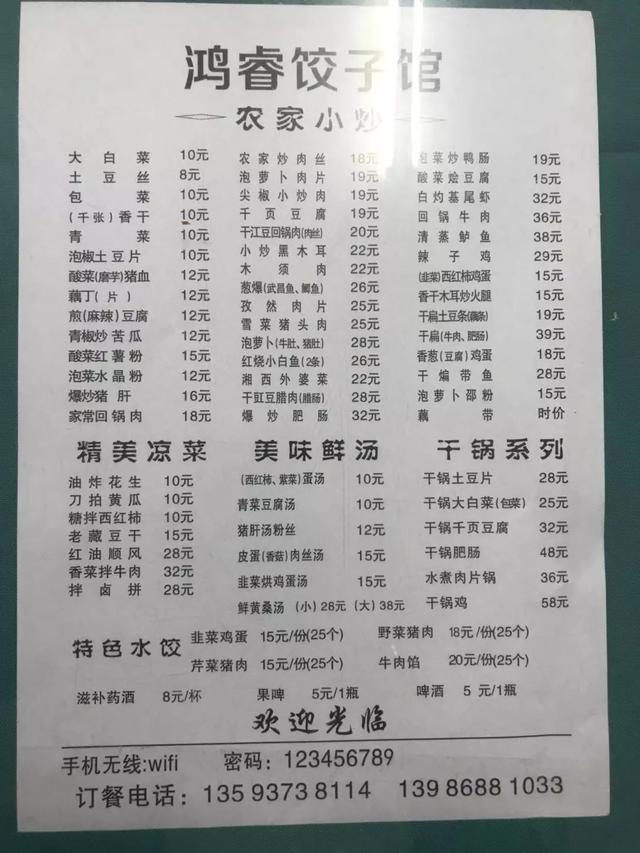 鸿睿饺子馆
农家小炒
大白菜 10元
土豆丝 8元
包菜 10元
(千张)香干 10元
青菜 10元
泡椒土豆片 10元
酸菜(磨芋)猪血 12元
藕丁(片) 12元
煎(麻辣)豆腐 12元
青椒炒苦瓜 12元
酸菜红薯粉 15元
泡菜水晶粉 12元
爆炒猪肝 16元
家常回锅肉 18元
农家炒肉丝 18元
泡萝卜肉片 19元
尖椒小炒肉 19元
千页豆腐 19元
干江豆回锅肉(肉丝) 20元
小炒黑木耳 22元
木须肉 22元
葱爆(武昌鱼、鲫鱼) 26元
孜然肉片 25元
雪菜猪头肉 25元
泡萝卜(牛肚、猪肚) 28元
红烧小白鱼(2条) 26元
湘西外婆菜 22元
干豇豆腊肉(腊肠) 28元
爆炒肥肠 32元
泡菜炒鸭肠 19元
酸菜烩豆腐 15元
白灼基尾虾 32元
回锅牛肉 36元
清蒸鲈鱼 38元
辣子鸡 29元
(韭菜)西红柿鸡蛋 15元
香干木耳炒火腿 15元
干扁土豆条(藕条) 19元
干扁(牛肉、肥肠) 39元
香葱(豆腐)鸡蛋 18元
干煸带鱼 28元
泡萝卜邵粉 15元
藕带 时价
精美凉菜
油炸花生 10元
刀拍黄瓜 10元
糖拌西红柿 10元
老藏豆干 15元
红油顺风 28元
香菜拌牛肉 32元
拌卤拼 28元
美味鲜汤
(西红柿、紫菜)蛋汤 10元
青菜豆腐汤 10元
猪肝汤粉丝 12元
皮蛋(香菇)肉丝汤 15元
韭菜烘鸡蛋汤 15元
鲜黄桑汤 (小)28元 (大)38元
干锅系列
干锅土豆片 28元
干锅大白菜(包菜) 25元
干锅千页豆腐 32元
干锅肥肠 48元
水煮肉片锅 36元
干锅鸡 58元
特色水饺
韭菜鸡蛋 15元/份(25个) 野菜猪肉 18元/份(25个)
芹菜猪肉 15元/份(25个) 牛肉馅 20元/份(25个)
滋补药酒 8元/杯 果啤 5元/1瓶 啤酒 5元/1瓶
欢迎光临
手机无线:wifi 密码：123456789
订餐电话：135 9373 8114 139 8688 1033